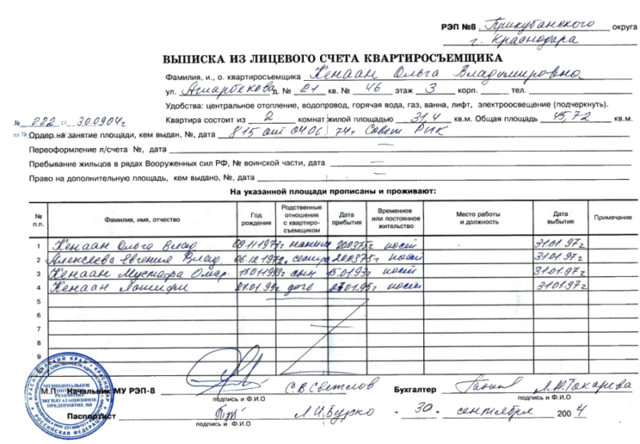 РЭП №8 Прикубанского округа
г. Краснодара
ВЫПИСКА ИЗ ЛИЦЕВОГО СЧЕТА КВАРТИРОСЪЕМЩИКА
Фамилия, и., о. квартиросъемщика Кенаан Ольга Владимировна
ул. д. № 21 кв. № 46 этаж 3 корп. тел.
Удобства: центральное отопление, водопровод, горячая вода, газ, ванна, лифт, электроосвещение (подчеркнуть).
№ 282 от 30.09.04г Квартира состоит из 2 комнат жилой площадью 31,4 кв.м. Общая площадь 45,72 кв.м.
Ордер на занятие площади, кем выдан, №, дата 815 от 04.06.74г Совет РИК
Переоформление л/счета №, дата —
Пребывание жильцов в рядах Вооруженных сил РФ, № воинской части, дата —
Право на дополнительную площадь, кем выдано, №, дата —
На указанной площади прописаны и проживают:
№ п.п. Фамилия, имя, отчество Год рождения Родственные отношения с квартиросъемщиком Дата прибытия Временное или постоянное жительство Место работы и должность Дата выбытия Примечание
1 Кенаан Ольга Влад. пост 31.01.97г
2 Алексеева Евгения Влад. сестра пост 31.01.97г
3 Кенаан Мустафа Омар сын пост 31.01.97г
4 Кенаан дочь пост 31.01.97г
5
6
7
8
9
М.П. Начальник МУ РЭП-8 С.В. Светлов Бухгалтер Л.И. Токарева
подпись и Ф.И.О подпись и Ф.И.О
Паспортист Л.И. Бурко 30 сентября 2004
подпись и Ф.И.О